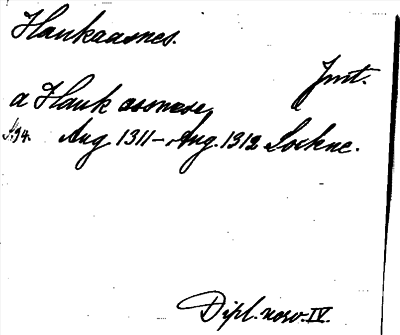 Haukaasnes.
Jmt.
a Hauk asnese,
s. 94. Aug 1311–Aug. 1312 Lockne.
Dipl. norv. IV.